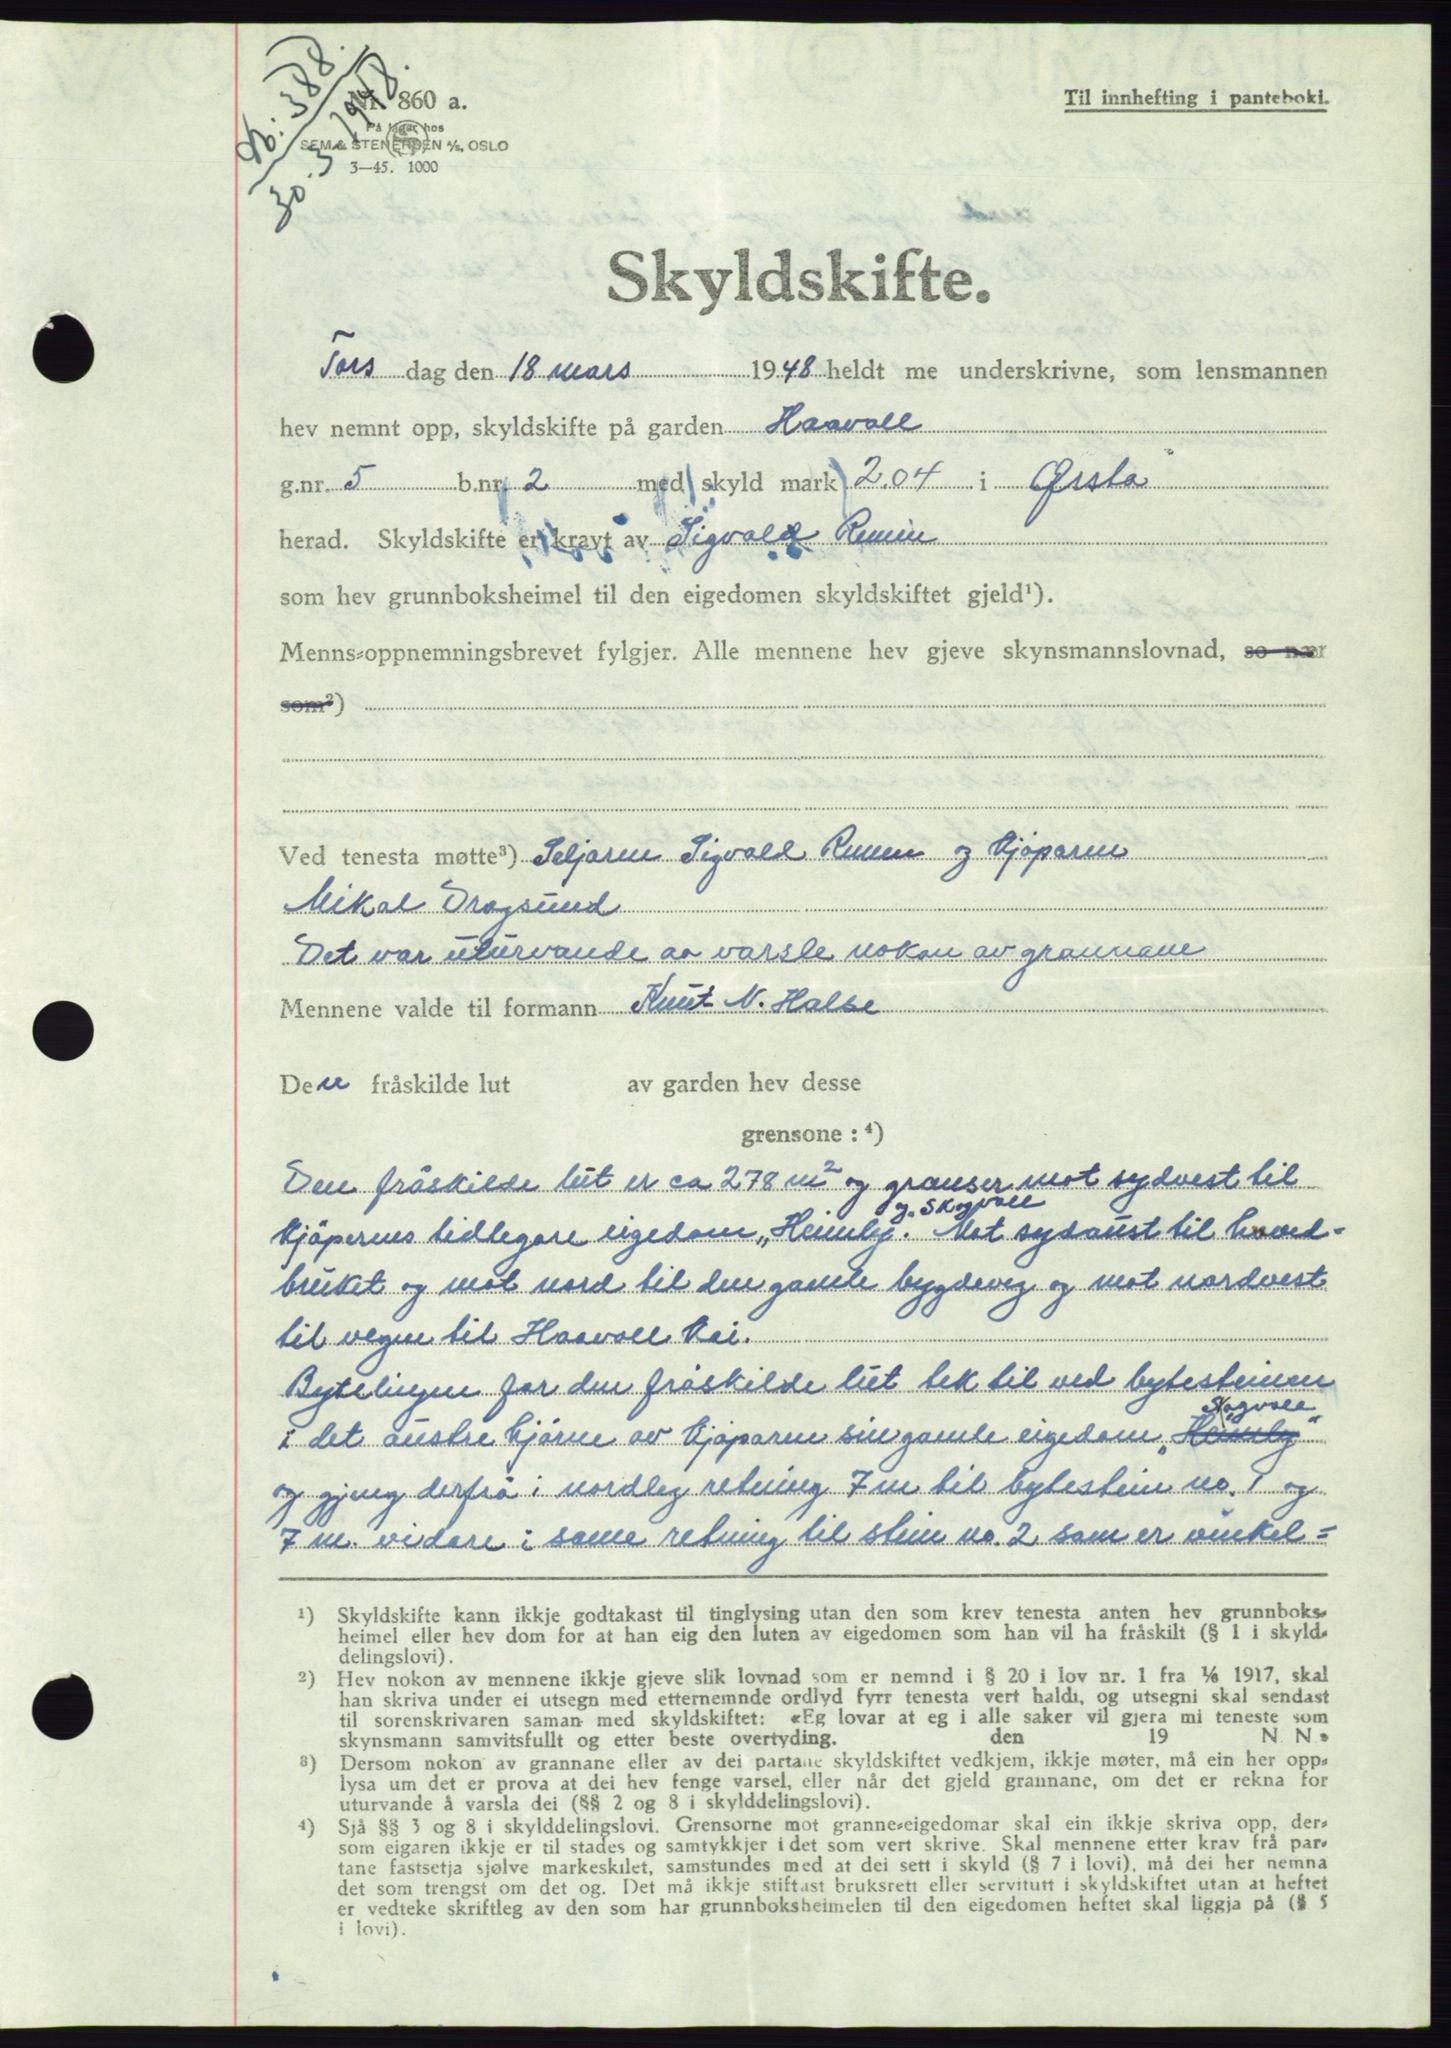 Nr. 388.
30. 3. 1948.
Nr. 860 a.
Til innhefting i panteboki.
På lager hos
SEM & STENERSEN A/S, OSLO
3—45. 1000
Skyldskifte.
Tors dag den 18 mars 1948 heldt me underskrivne, som lensmannen
hev nemnt opp, skyldskifte på garden Haavoll
g.nr. 5 b.nr. 2 med skyld mark 2.04 i Ørsta
herad. Skyldskifte er kravt av Sigvald
som hev grunnboksheimel til den eigedomen skyldskiftet gjeld¹).
Menns-oppnemningsbrevet fylgjer. Alle mennene hev gjeve skynsmannslovnad, so nær
som²)
Ved tenesta møtte³) Seljaren Sigvald og kjøparen
Mikal Dragsund
Det var uturvande aa varsle nokon av grannane
Mennene valde til formann Knut N. Halse
Den fråskilde lut av garden hev desse
grensone : ⁴)
Den fråskilde lut er ca 278 m² og grenser mot sydvest til
og Skogvoll
kjøperens tidlegare eigedom „Heimly". Mot sydaust til hoved-
bruket og mot nord til den gamle bygdeveg og mot nordvest
til vegen til Haavoll kai.
Bytelinjen for den fråskilde lut tek til ved bytesteinen
Skogvoll
i det austre hjörne av kjøparen sin gamle eigedom „Heimly"
og gjeng derfrå i nordleg retning 7 m til bytestein no. 1 og
7 m. vidare i same retning til stein no. 2 som er vinkel=
¹) Skyldskifte kann ikkje godtakast til tinglysing utan den som krev tenesta anten hev grunnboks-
heimel eller hev dom for at han eig den luten av eigedomen som han vil ha fråskilt (§ 1 i skyld-
delingslovi).
²) Hev nokon av mennene ikkje gjeve slik lovnad som er nemnd i § 20 i lov nr. 1 fra 1/6 1917, skal
han skriva under ei utsegn med etternemnde ordlyd fyrr tenesta vert haldi, og utsegni skal sendast
til sorenskrivaren saman med skyldskiftet: «Eg lovar at eg i alle saker vil gjera mi teneste som
skynsmann samvitsfullt og etter beste overtyding. den 19 N. N.»
³) Dersom nokon av grannane eller av dei partane skyldskiftet vedkjem, ikkje møter, må ein her opp-
lysa um det er prova at dei hev fenge varsel, eller når det gjeld grannane, om det er rekna for
uturvande å varsla dei (§§ 2 og 8 i skylddelingslovi).
⁴) Sjå §§ 3 og 8 i skylddelingslovi. Grensorne mot granne-eigedomar skal ein ikkje skriva opp, der-
som eigaren ikkje er til stades og samtykkjer i det som vert skrive. Skal mennene etter krav frå par-
tane fastsetja sjølve markeskilet, samstundes med at dei sett i skyld (§ 7 i lovi), må dei her nemna
det som trengst om det og. Det må ikkje stiftast bruksrett eller servitutt i skyldskiftet utan at heftet
er vedteke skriftleg av den som har grunnboksheimelen til den eigedomen heftet skal liggja på (§ 5
i lovi).